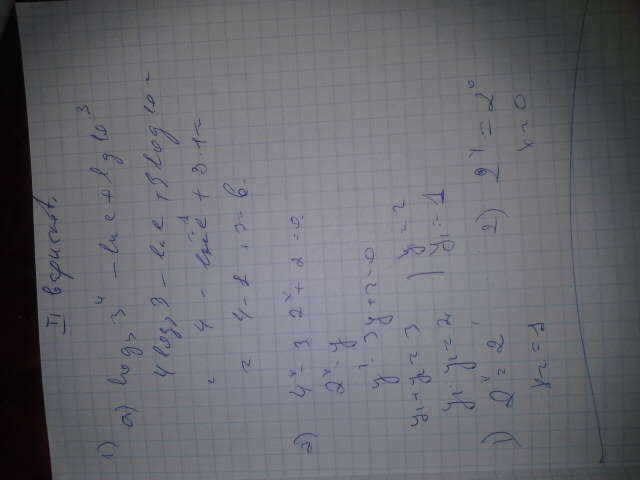 II вариант.
1) а) log₃ 3⁴ - ln e + lg 10³
4 log₃ 3 - ln e + 3 log 10 =
= 4 - ln e + 3·1 =
= 4 - 1 + 3 = 6.
2) 4ˣ - 3 2ˣ + 2 = 0
2ˣ - y
y² - 3y + 2 = 0
y₁ + y₂ = 3 y₁ = 2
y₁ · y₂ = 2 y₂ = 1
1) 2ˣ = 2¹ 2) 2ˣ = 2⁰
x = 1 x = 0